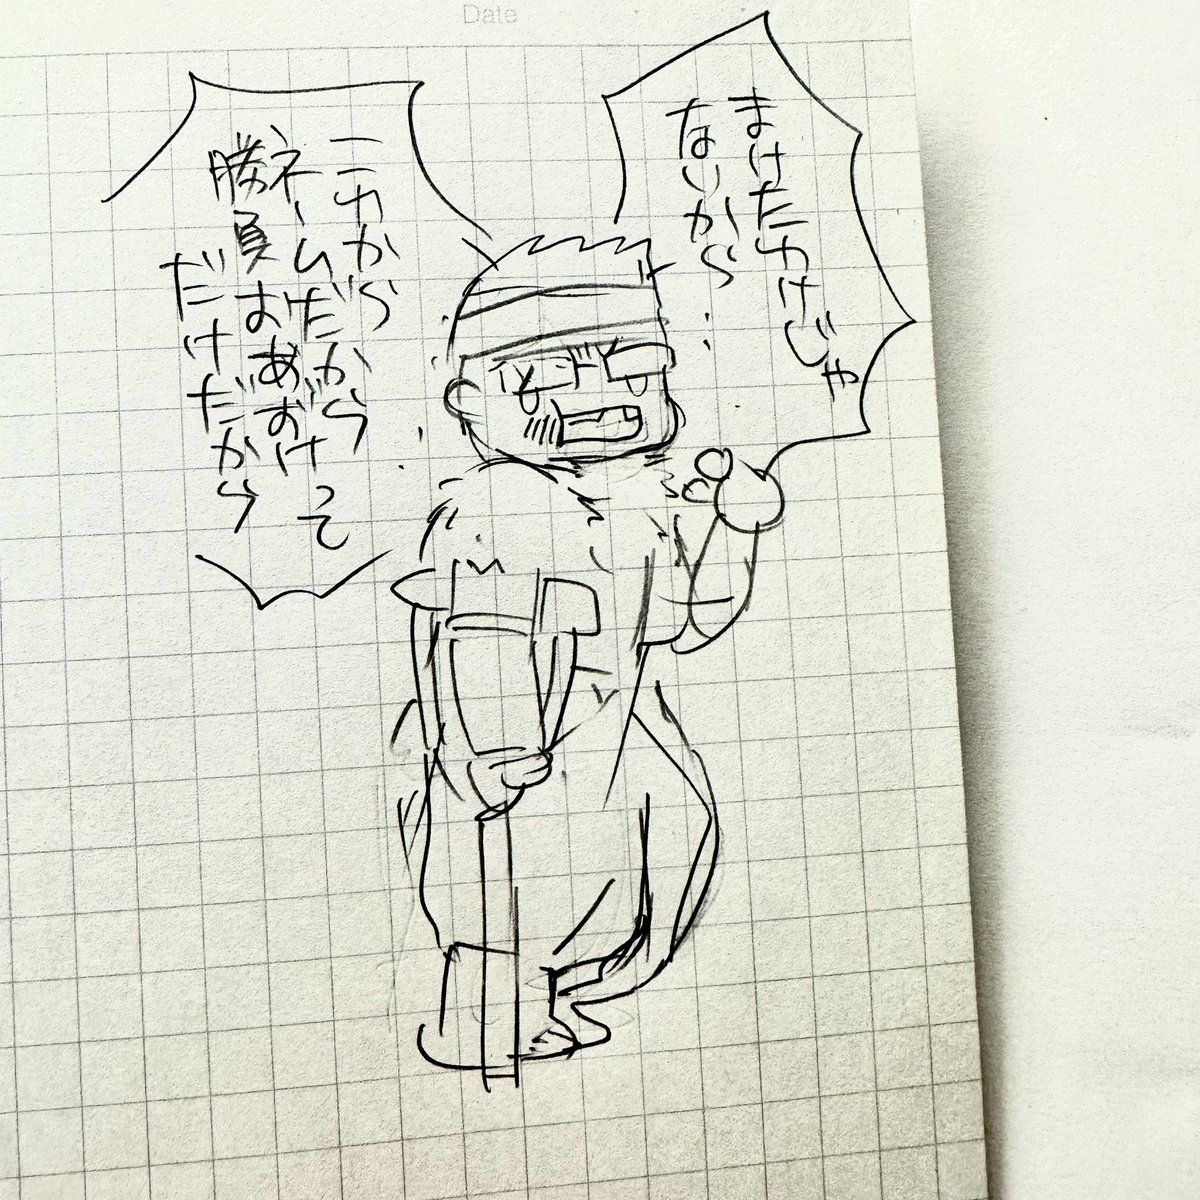 Date
まけたわけじゃ
ないから
こっから
ネームだから
勝負おあずけって
だけだから